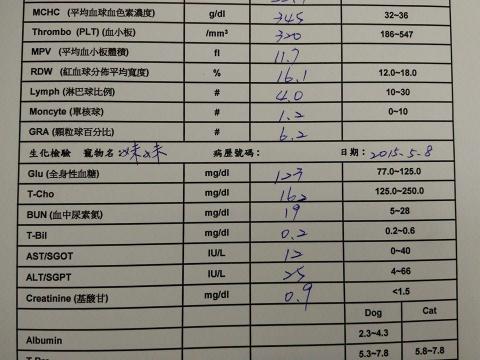 MCHC (平均血球血色素濃度) g/dl 345 32~36
Thrombo (PLT) (血小板) /mm³ 320 186~547
MPV (平均血小板體積) fl 11.7
RDW (紅血球分佈平均寬度) % 16.1 12.0~18.0
Lymph (淋巴球比例) # 4.0 10~30
Moncyte (單核球) # 1.2 0~10
GRA (顆粒球百分比) # 6.2
生化檢驗 寵物名: 妹妹 病歷號碼: 日期: 2015.5.8
Glu (全身性血糖) mg/dl 123 77.0~125.0
T-Cho mg/dl 162 125.0~250.0
BUN (血中尿素氮) mg/dl 19 5~28
T-Bil mg/dl 0.2 0.2~0.6
AST/SGOT IU/L 12 0~40
ALT/SGPT IU/L 25 4~66
Creatinine (基酸甘) mg/dl 0.9 <1.5
Dog Cat
Albumin 2.3~4.3
5.3~7.8 5.8~7.8